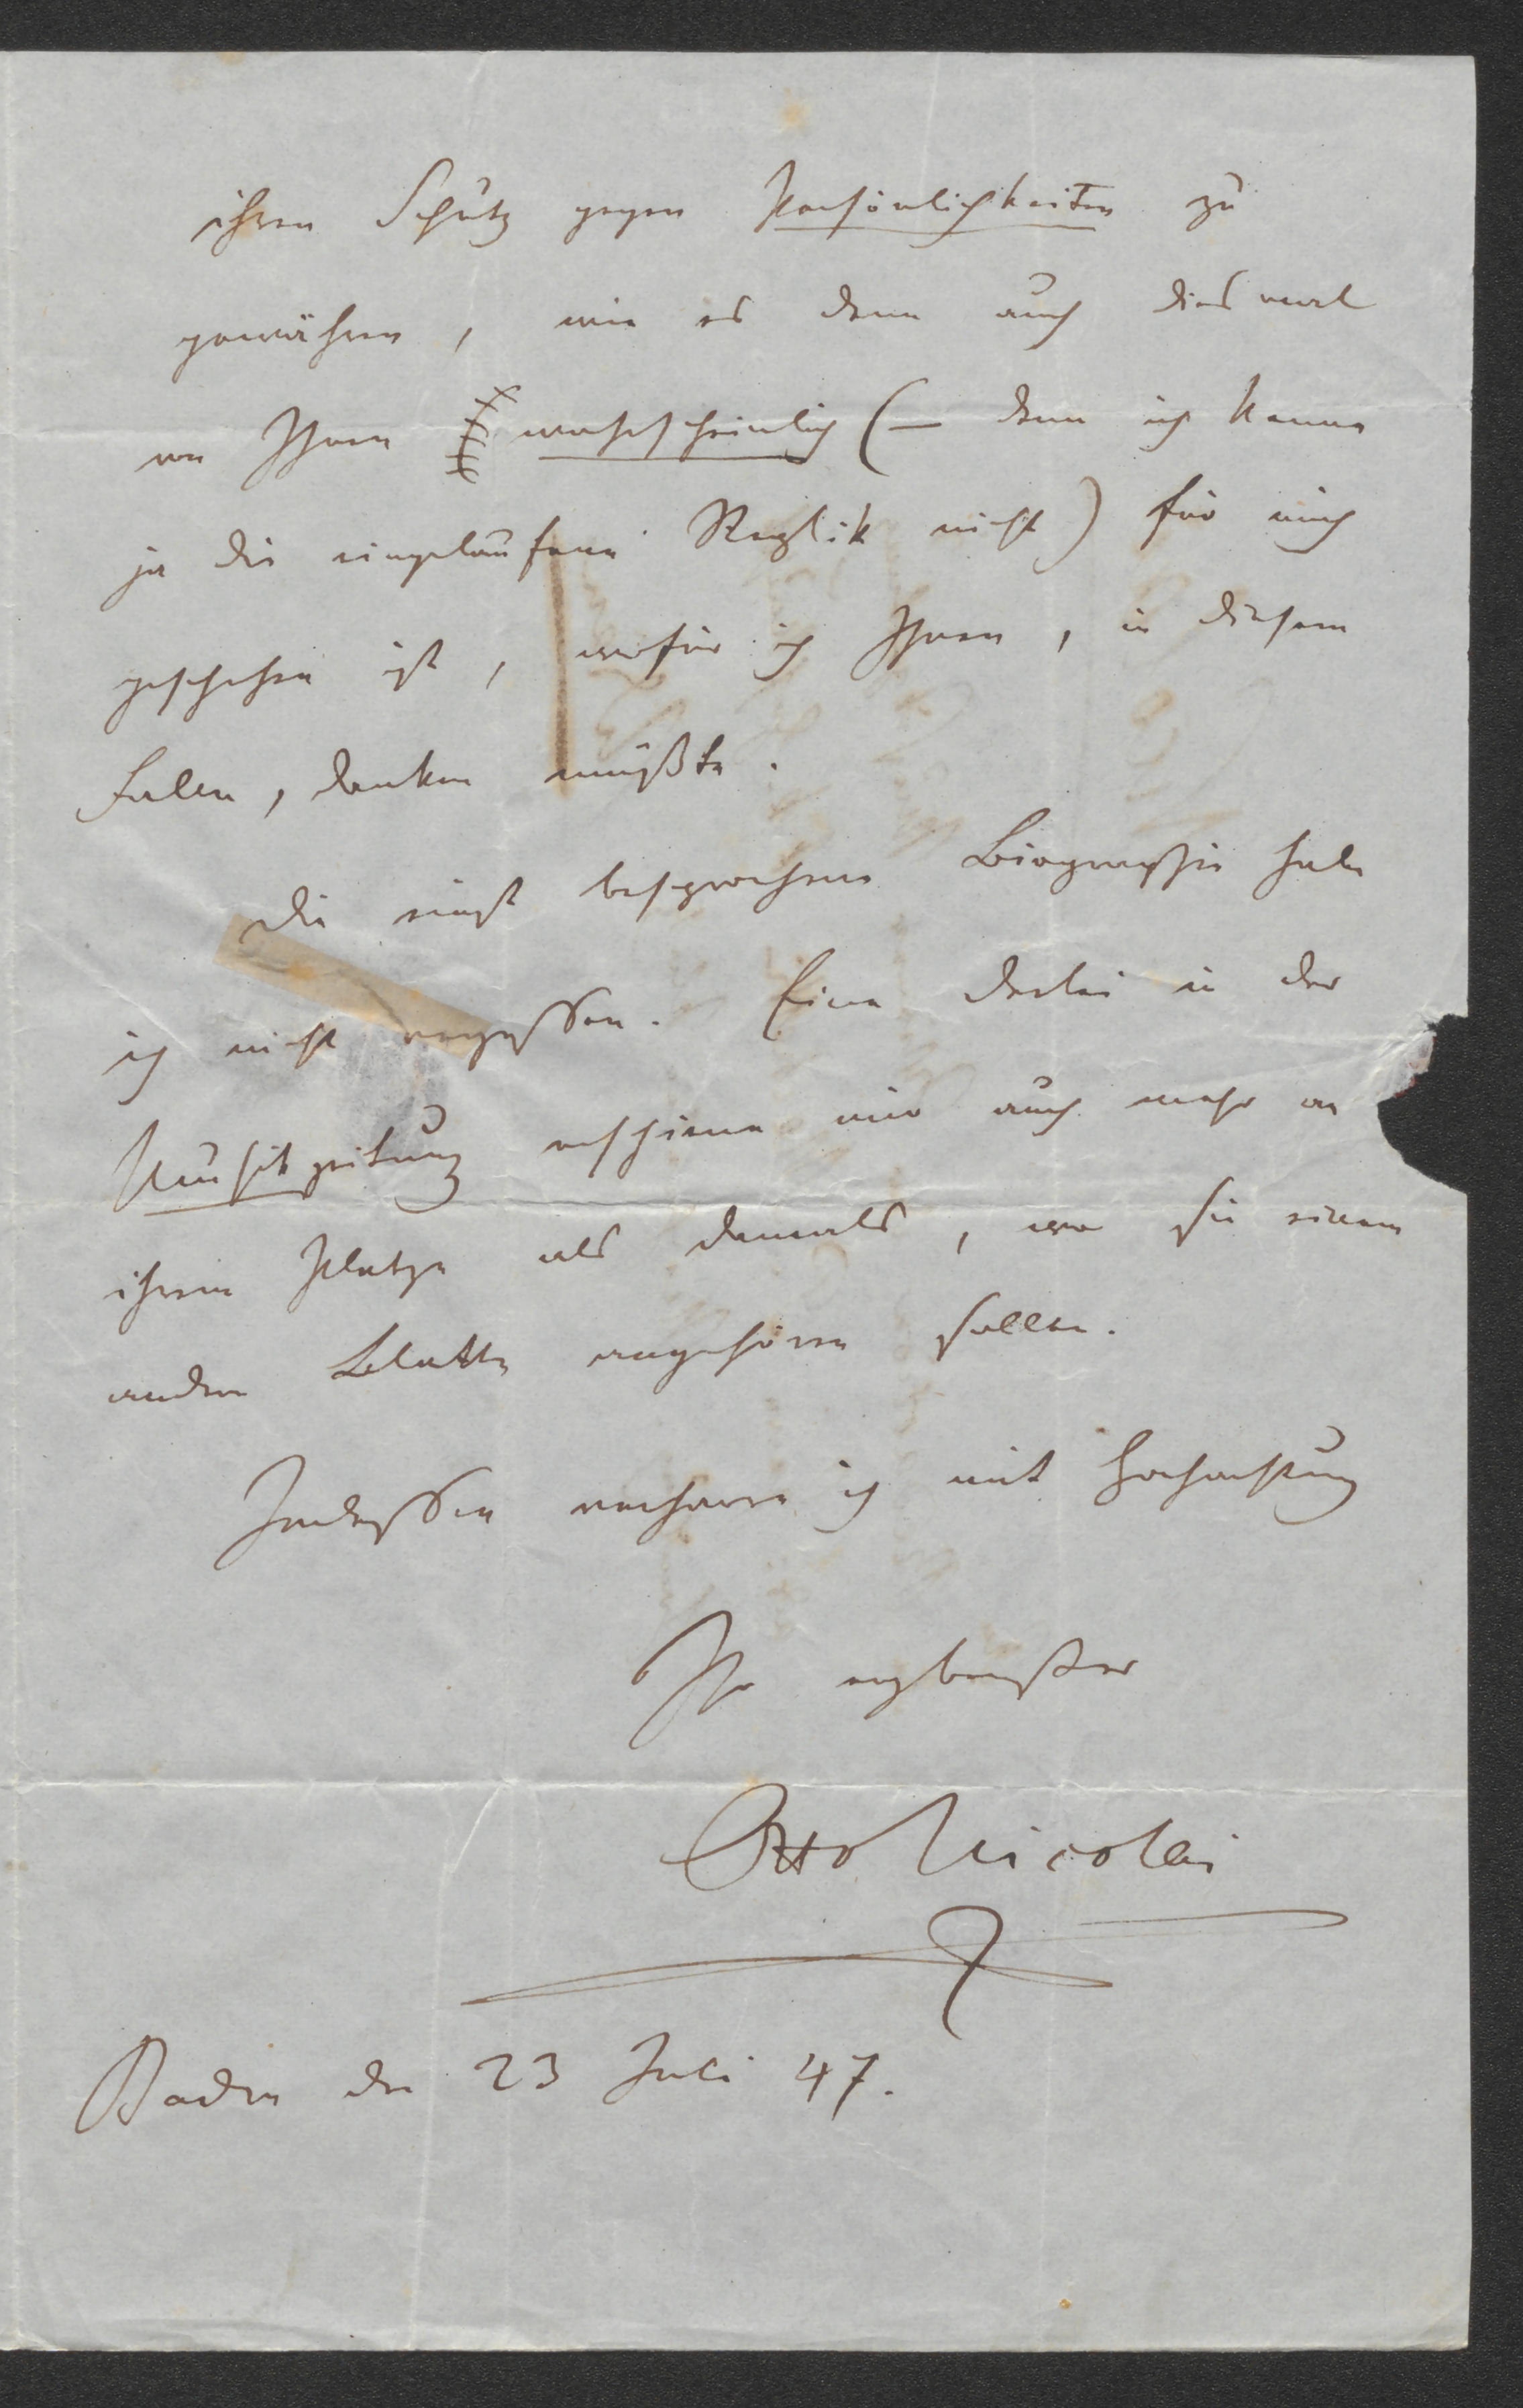 ihren Schutz gegen Persönlichkeiten zu
gewähren, wie es denn auch diesmal
von Ihnen wahrscheinlich (— denn ich kenne
ja die eingelaufene Replik nicht) für mich
geschehen ist, wofür ich Ihnen, in diesem
Falle, danken müßte.
Die einst besprochene Biographie habe
ich nicht vergessen. Eine derlei in der
Musikzeitung erschiene mir auch mehr an
ihrem Platze als damals, wo sie einem
andren Blatte angehören sollte.
Indessen verharre ich mit Hochachtung
Ihr ergebenster
Otto Nicolai
Baden den 23 Juli 47.